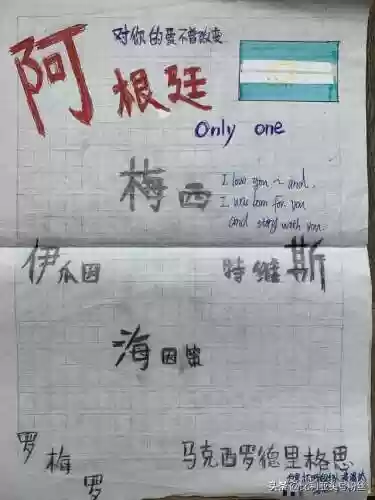 对你的爱不曾改变
阿根廷
Only one
梅西
I love you ~ and.
I use born for you
and stay with you.
伊瓜因
特维斯
海因策
罗梅罗
马克西罗德里格思